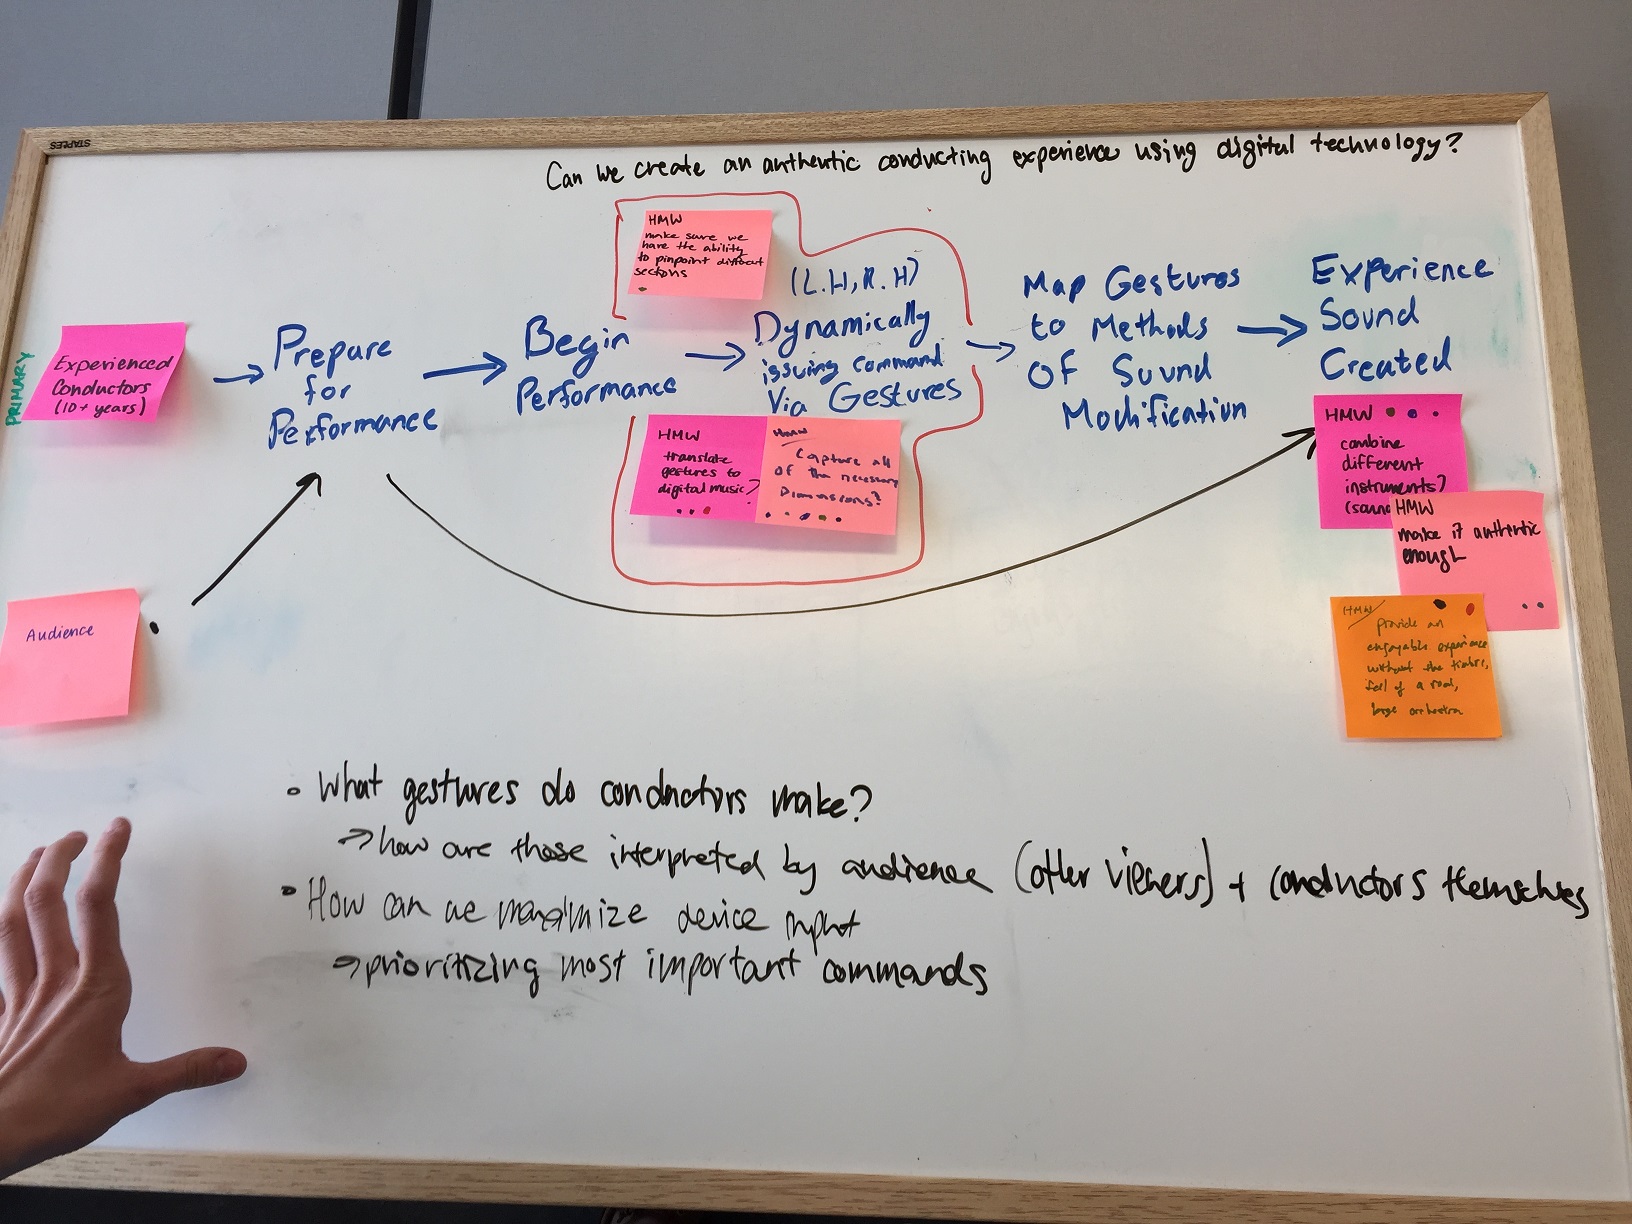 STAPLES
Can we create an authentic conducting experience using digital technology?
PRIMARY
Experienced
Conductors
(10+ years)
Prepare
for
Performance
Begin
Performance
HMW
make sure we
have the ability
to pinpoint different
sections
(L.H, R.H)
Dynamically
issuing command
Via Gestures
HMW
translate
gestures to
digital music?
HMW
Capture all
of the necessary
Dimensions?
Map Gestures
to Methods
OF Sound
Modification
Experience
Sound
Created
HMW
combine
different
instruments?
(soun
HMW
make it authentic
enough
HMW
provide an
enjoyable experience
without the timbre,
feel of a real,
large orchestra
Audience
What gestures do conductors make?
→ how are those interpreted by audience (other viewers) + conductors themselves
How can we maximize device input
→ prioritizing most important commands